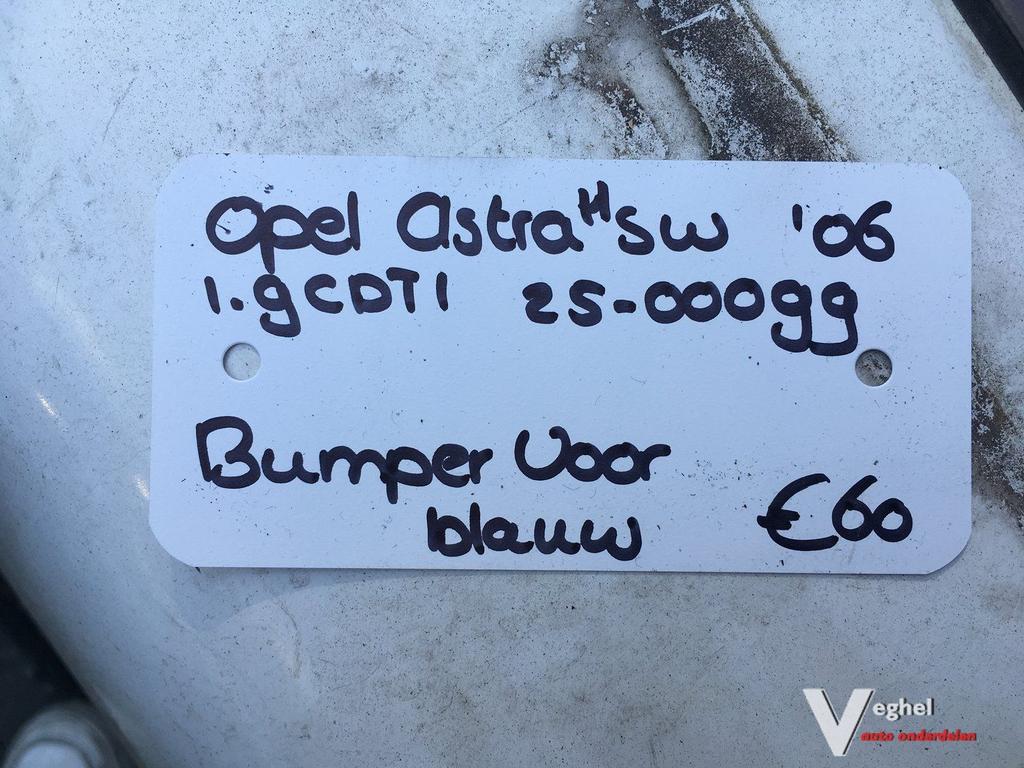 Opel Astra H SW '06
1.9CDTI 25-00099
Bumper Voor
blauw €60
Veghel
auto onderdelen